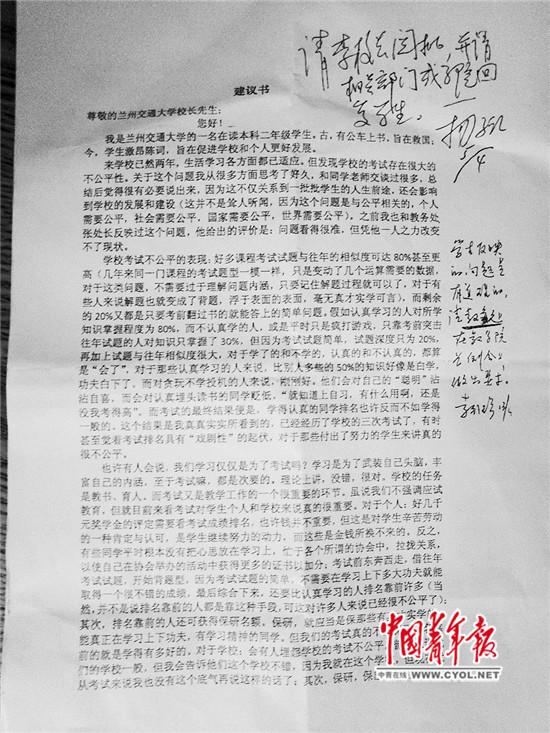 请李校长阅批，并请
相关部门或
回
复学生。
5/4
建议书
尊敬的兰州交通大学校长先生：
您好！
我是兰州交通大学的一名在读本科二年级学生。古，有公车上书，旨在救国；
今，学生激昂陈词，旨在促进学校和个人更好发展。
来学校已然两年，生活学习各方面都已适应。但发现学校的考试存在很大的
不公平性。关于这个问题我从很多方面思考了好久，和同学老师交谈过很多，总
结后觉得很有必要说出来，因为这不仅关系到一批批学生的人生前途，还会影响
到学校的发展和建设（这并不是耸人听闻，因为这个问题是与公平相关的，个人
需要公平，社会需要公平，国家需要公平，世界需要公平）。之前我也和教务处
张处长反映过这个问题，他给出的评价是：问题看得很准，但凭他一人之力改变
不了现状。
学校考试不公平的表现：好多课程考试试题与往年的相似度可达 80%甚至更
高（几年来同一门课程的考试题型一模一样，只是变动了几个运算需要的数据，
对于这类问题，不需要过于理解问题内涵，只要记住解题过程就可以了，对于有
些人来说解题也就变成了背题，浮于表面的表面，毫无真才实学可言），而剩余
的 20%又都是只要考前翻过书的就能答上的简单问题。假如认真学习的人对所学
知识掌握程度为 80%，而不认真学的人，或是平时只是疯打游戏，只靠考前突击
往年试题的人对知识只掌握了 30%，但因为考试试题简单，试题深度只为 20%，
再加上试题与往年相似度很大，对于学了的和不学的，认真的和不认真的，都算
是“会了”，对于那些认真学习的人来说，比别人多些的 50%的知识好像是白学，
功夫白下了。而对贪玩不学投机的人来说，刚刚好。他们会对自己的“聪明”沾
沾自喜，而会对认真埋头读书的同学贬低，“就知道上自习，有什么用啊，还是
没我考得高”。而考试的最终结果便是，学得认真的同学排名也许反而不如学得
一般的。这个结果是我真真实实所看到的，已经经历了学校的三次考试了，有时
甚至觉着考试排名具有“戏剧性”的起伏，对于那些付出了努力的学生来讲真的
很不公平。
也许有人会说，我们学习仅仅是为了考试吗？学习是为了武装自己头脑，丰
富自己的内涵，至于考试嘛，都是次要的。理论上讲，没错，很对。学校的任务
是教书、育人。而考试又是教学工作的一个很重要的环节。虽说我们不强调应试
教育，但就目前来看考试对学生个人和学校来说真的很重要。对于个人：好几千
元奖学金的评定需要看考试成绩排名，也许钱并不重要，但这是对学生辛苦劳动
的一种肯定与认可，是学生继续努力的动力，而这些是金钱所换不来的。反之，
有些同学平时根本没有把心思放在学习上，忙于各个所谓的协会中，拉拢关系，
以使自己在协会举办的活动中获得更多的证书以加分；考试前东奔西走，借往年
考试试题，开始背题型，因为考试试题的简单，不需要在学习上下多大功夫就能
取得一个很不错的成绩，最后综合下来，还要比认真学习的人排名靠前许多（当
然，并不是说排名靠前的人都是靠这种手段，可这对许多人来说已经很不公平了）；
其次，排名靠前的人还可获得保研名额。保研，就应当是保那些有
能真正在学习上下功夫，有学习精神的同学。但我们的考试真的不
前的就是学得有多好的。对于学校：会有人埋怨学校的考试不公平，
们的学校一般，但我会告诉他们这个学校不错，因为我就在这个学
从考试来说我也没有这个底气再说这样的话了；其次，保研，保
学生反映
的问题是
有道理的，
请教务处
在
做出要求。
中国青年报
中青在线 WWW.CYOL.NET